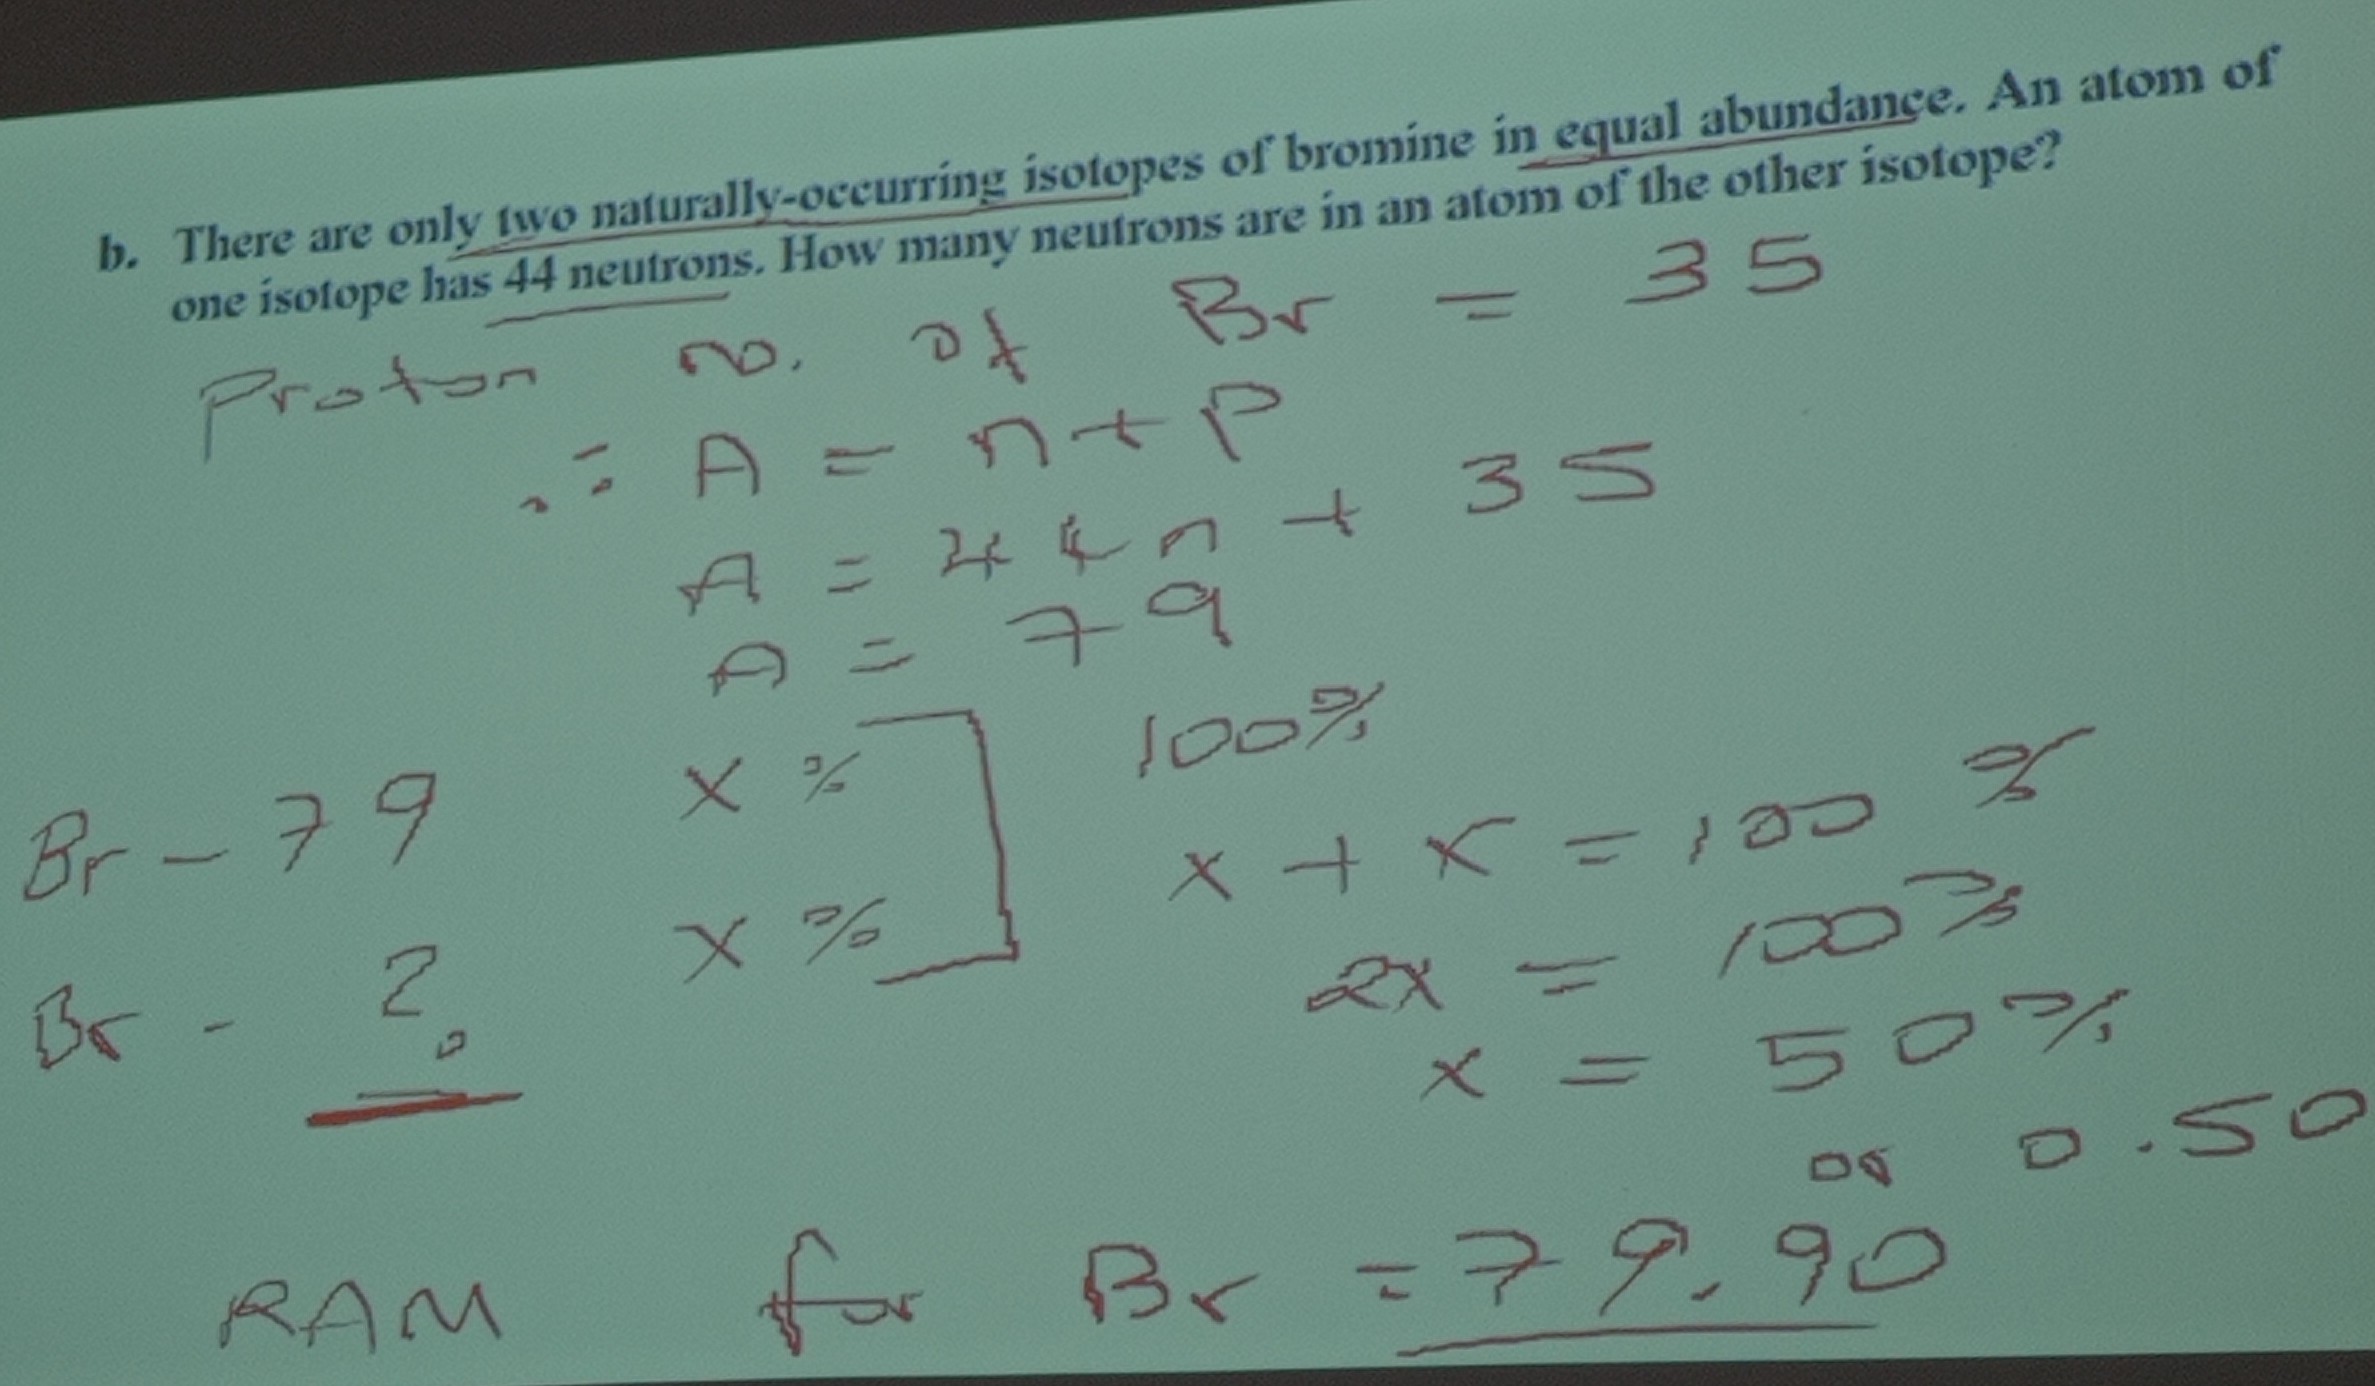 b. There are only two naturally-occurring isotopes of bromine in equal abundance. An atom of
one isotope has 44 neutrons. How many neutrons are in an atom of the other isotope?
Proton no. of Br = 35
∴ A = n + P
A = 44n + 35
A = 79
Br - 79 x % 100%
x + x = 100 %
Br - ? x %
2x = 100%
x = 50%
or 0.50
RAM for Br = 79.90